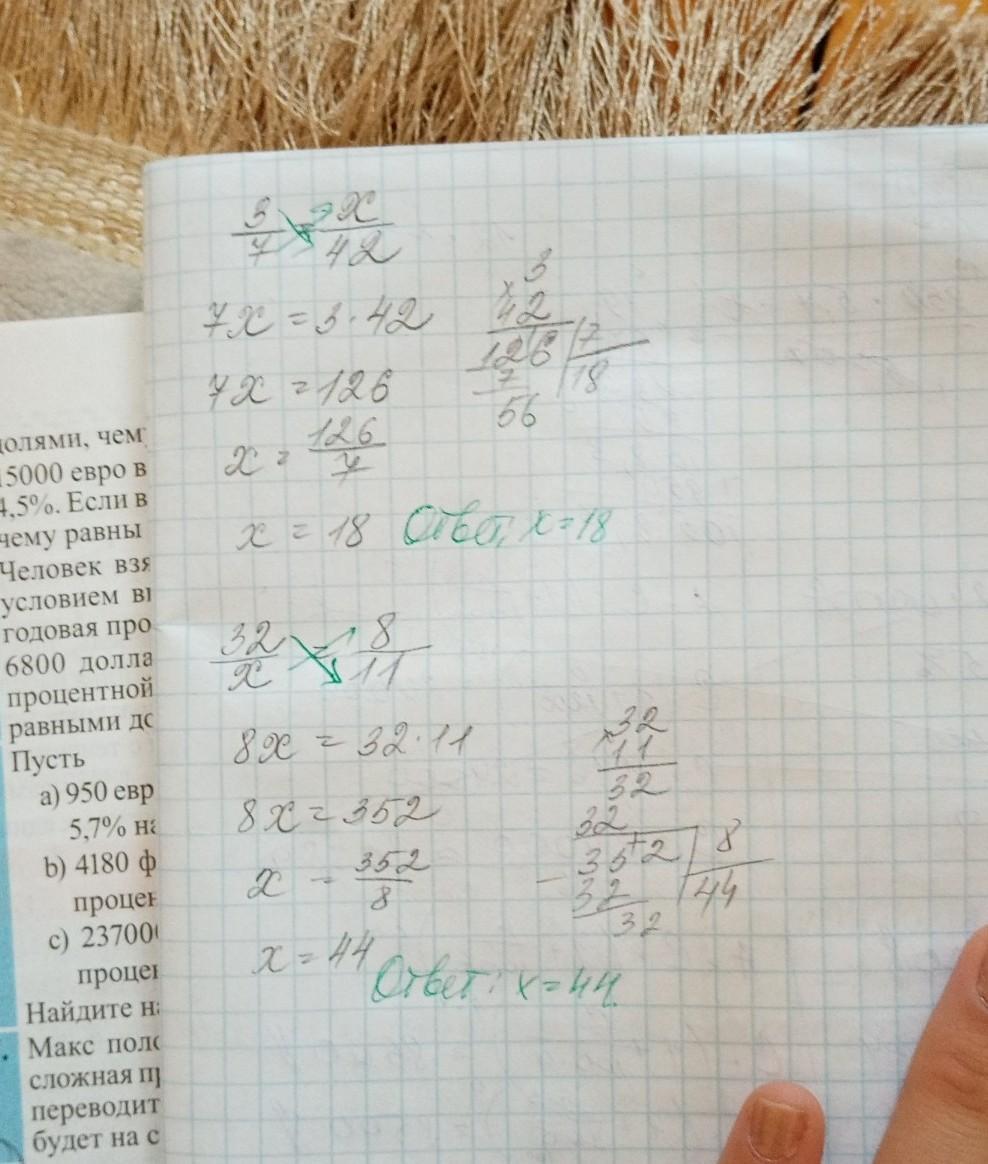 3/7 = x/42
7x = 3·42
7x = 126
x = 126/7
x = 18 Ответ: x=18
× 3
42
126 | 7
7 18
56
32/x = 8/11
8x = 32·11
8x = 352
x = 352/8
x = 44 Ответ: x=44.
32
× 11
32
32
352 | 8
32 44
32
долями, чем
15000 евро в
4,5%. Если в
чему равны
Человек взя
условием вн
годовая про
6800 долла
процентной
равными до
Пусть
a) 950 евр
5,7% на
b) 4180 ф
процен
c) 23700
процен
Найдите н
Макс поло
сложная п
переводит
будет на с